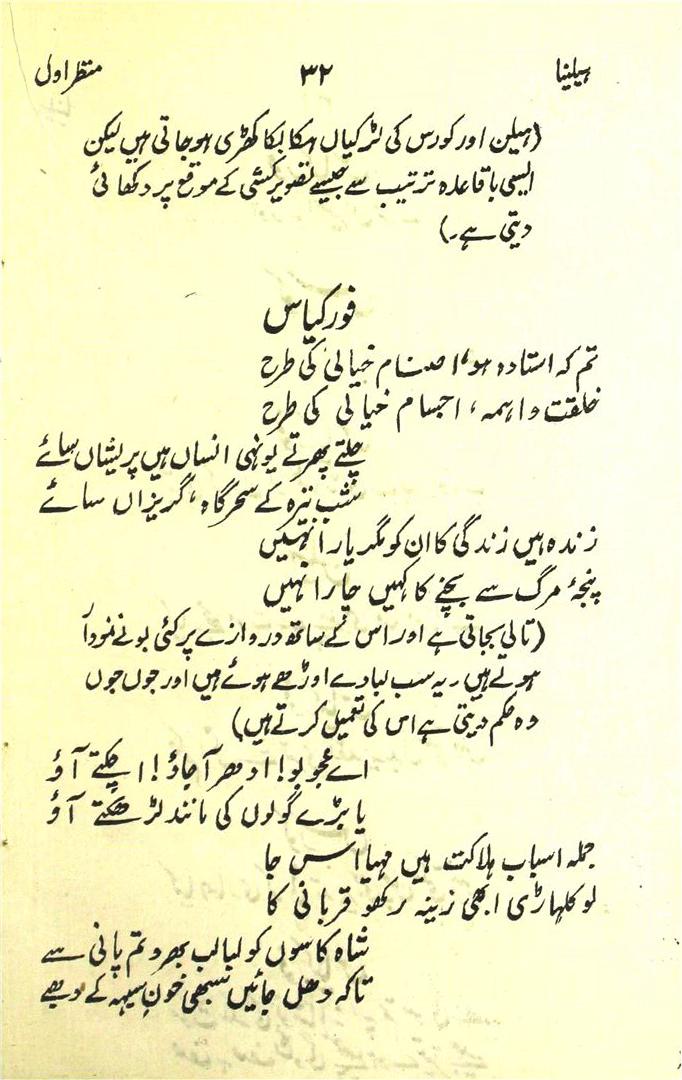 ہیلینا ۳۲ منظر اول
(ہیلن اور کورس کی لڑکیاں ہکا بکا کھڑی ہو جاتی ہیں لیکن
ایسی باقاعدہ ترتیب سے جیسے تصویر کشی کے موقع پر دکھائی
دیتی ہے۔)
فورکیاس
تم کہ استادہ ہو، اصنام خیالی کی طرح
خلقت واہمہ، اجسام خیالی کی طرح
چلتے پھرتے یونہی انساں ہیں پریشاں سائے
شب تیرہ کے سحر گاہ، گریزاں سائے
زندہ ہیں زندگی کا ان کو مگر یارا نہیں
پنجۂ مرگ سے بچنے کا کہیں چارا نہیں
(تالی بجاتی ہے اور اس کے ساتھ دروازے پر کئی بونے نمودار
ہوتے ہیں۔ یہ سب لبادے اوڑھے ہوئے ہیں اور جوں جوں
وہ حکم دیتی ہے اس کی تعمیل کرتے ہیں)
اے عجوبو! ادھر آ جاؤ! اچکتے آؤ
یا بڑے گولوں کی مانند لڑھکتے آؤ
جملہ اسباب ہلاکت ہیں مہیا اس جا
لو کلہاڑی ابھی زینہ پر رکھو قربانی کا
شاہ کاسوں کو لبالب بھر دو تم پانی سے
تاکہ دھل جائیں سبھی خون سیہہ کے دھبے